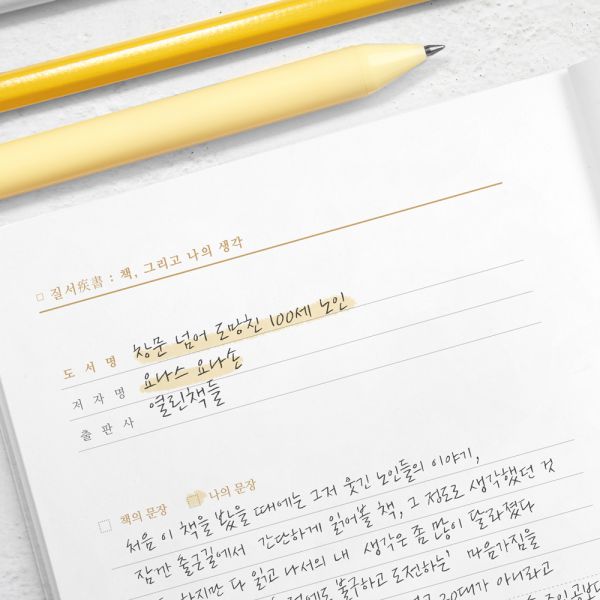 □ 질서疾書 : 책, 그리고 나의 생각
도 서 명 창문 넘어 도망친 100세 노인
저 자 명 요나스 요나손
출 판 사 열린책들
책의 문장 나의 문장
처음 이 책을 봤을 때에는 그저 웃긴 노인들의 이야기,
잠깐 출근길에서 간단하게 읽어볼 책, 그 정도로 생각했던 것
하지만 다 읽고 나서의 내 생각은 좀 많이 달라졌다
불구하고 도전하는' 마음가짐을
20대가 아니라고